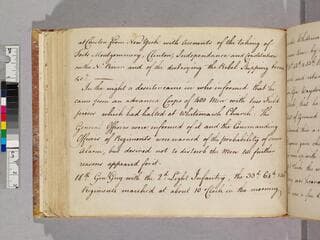 at Chester from New York with accounts of the taking of
Forts Montgommery, Clinton, Independance and Constitution
on the Nº River and of the destroying the Rebel Shipping
&cª
In the night a deserter came in who informed that he
came from an advanced Corps of 1400 Men with two Field
pieces which had halted at Whitemarsh Church. The
General Officers were informed of it and the Commanding
Officers of Regiments were warned of the probability of some
Alarm, but desired not to disturb the Men till further
reasons appeared for it.
18th. Genl Grey with the 2d. Light Infantry, the 33d.
Regiments marched at about 10 o'Clock in the morning,